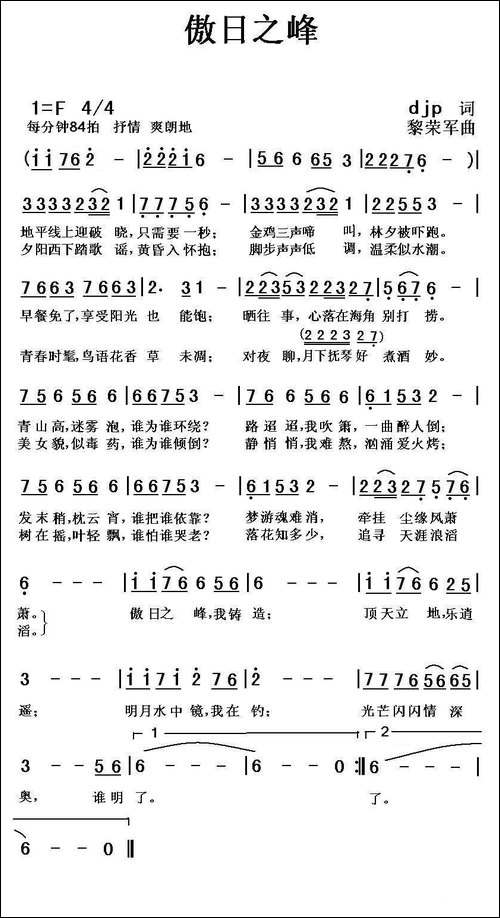 傲日之峰
1=F 4/4 djp 词
每分钟84拍 抒情 爽朗地 黎荣军曲
(i i 7 6 2 - | 2 2 2 i 6 - | 5 6 6 6 5 3 | 2 2 2 7 6 - )|
3 3 3 3 2 3 2 1 | 7 7 7 5 6 - | 3 3 3 3 2 3 2 1 | 2 2 5 5 3 - |
地平线上迎破 晓,只需要一秒; 金鸡三声啼 叫,林夕被吓跑。
夕阳西下踏歌 谣,黄昏入怀抱; 脚步声声低 调,温柔似水潮。
7 6 6 3 7 6 6 3 | 2· 3 1 - | 2 2 3 5 3 2 2 3 2 7 | 5 6 7 6 - |
早餐免了,享受阳光 也 能饱; 晒往 事,心落在海角 别打 捞。
(2 2 2 3 2 7)
青春时髦,鸟语花香 草 未凋; 对夜 聊,月下抚琴好 煮酒 妙。
7 5 6 5 6 | 6 6 7 5 3 - | 7 5 6 5 6 - | 6 1 5 3 2 - |
青山高,迷雾 泡,谁为谁环绕? 路 迢 迢,我吹 箫,一曲醉人倒;
美女貌,似毒 药,谁为谁倾倒? 静 悄 悄,我难 熬,汹涌爱火烤;
7 5 6 5 6 | 6 6 7 5 3 - | 6 1 5 3 2 - | 2 2 3 2 7 5 7 6 |
发末稍,枕云 宵,谁把谁依靠? 梦游魂难消, 牵挂 尘缘风萧
树在摇,叶轻 飘,谁怕谁哭老? 落花知多少, 追寻 天涯浪滔
6 - - - | i i i 7 6 6 5 6 | 6 - - - | i i i 7 6 6 2 5 |
萧。 傲日之 峰,我铸 造; 顶天立 地,乐逍
滔。
3 - - - | i i 7 i 2 7 6 | 2 - - - | 7 7 7 6 5 6 6 5 |
遥; 明月水中 镜,我在 钓; 光芒闪闪情 深
1 2
3 - - 5 6 | 6 - - - | 6 - - 0 :‖ 6 - - - |
奥, 谁明 了。 了。
6 - - 0 ‖